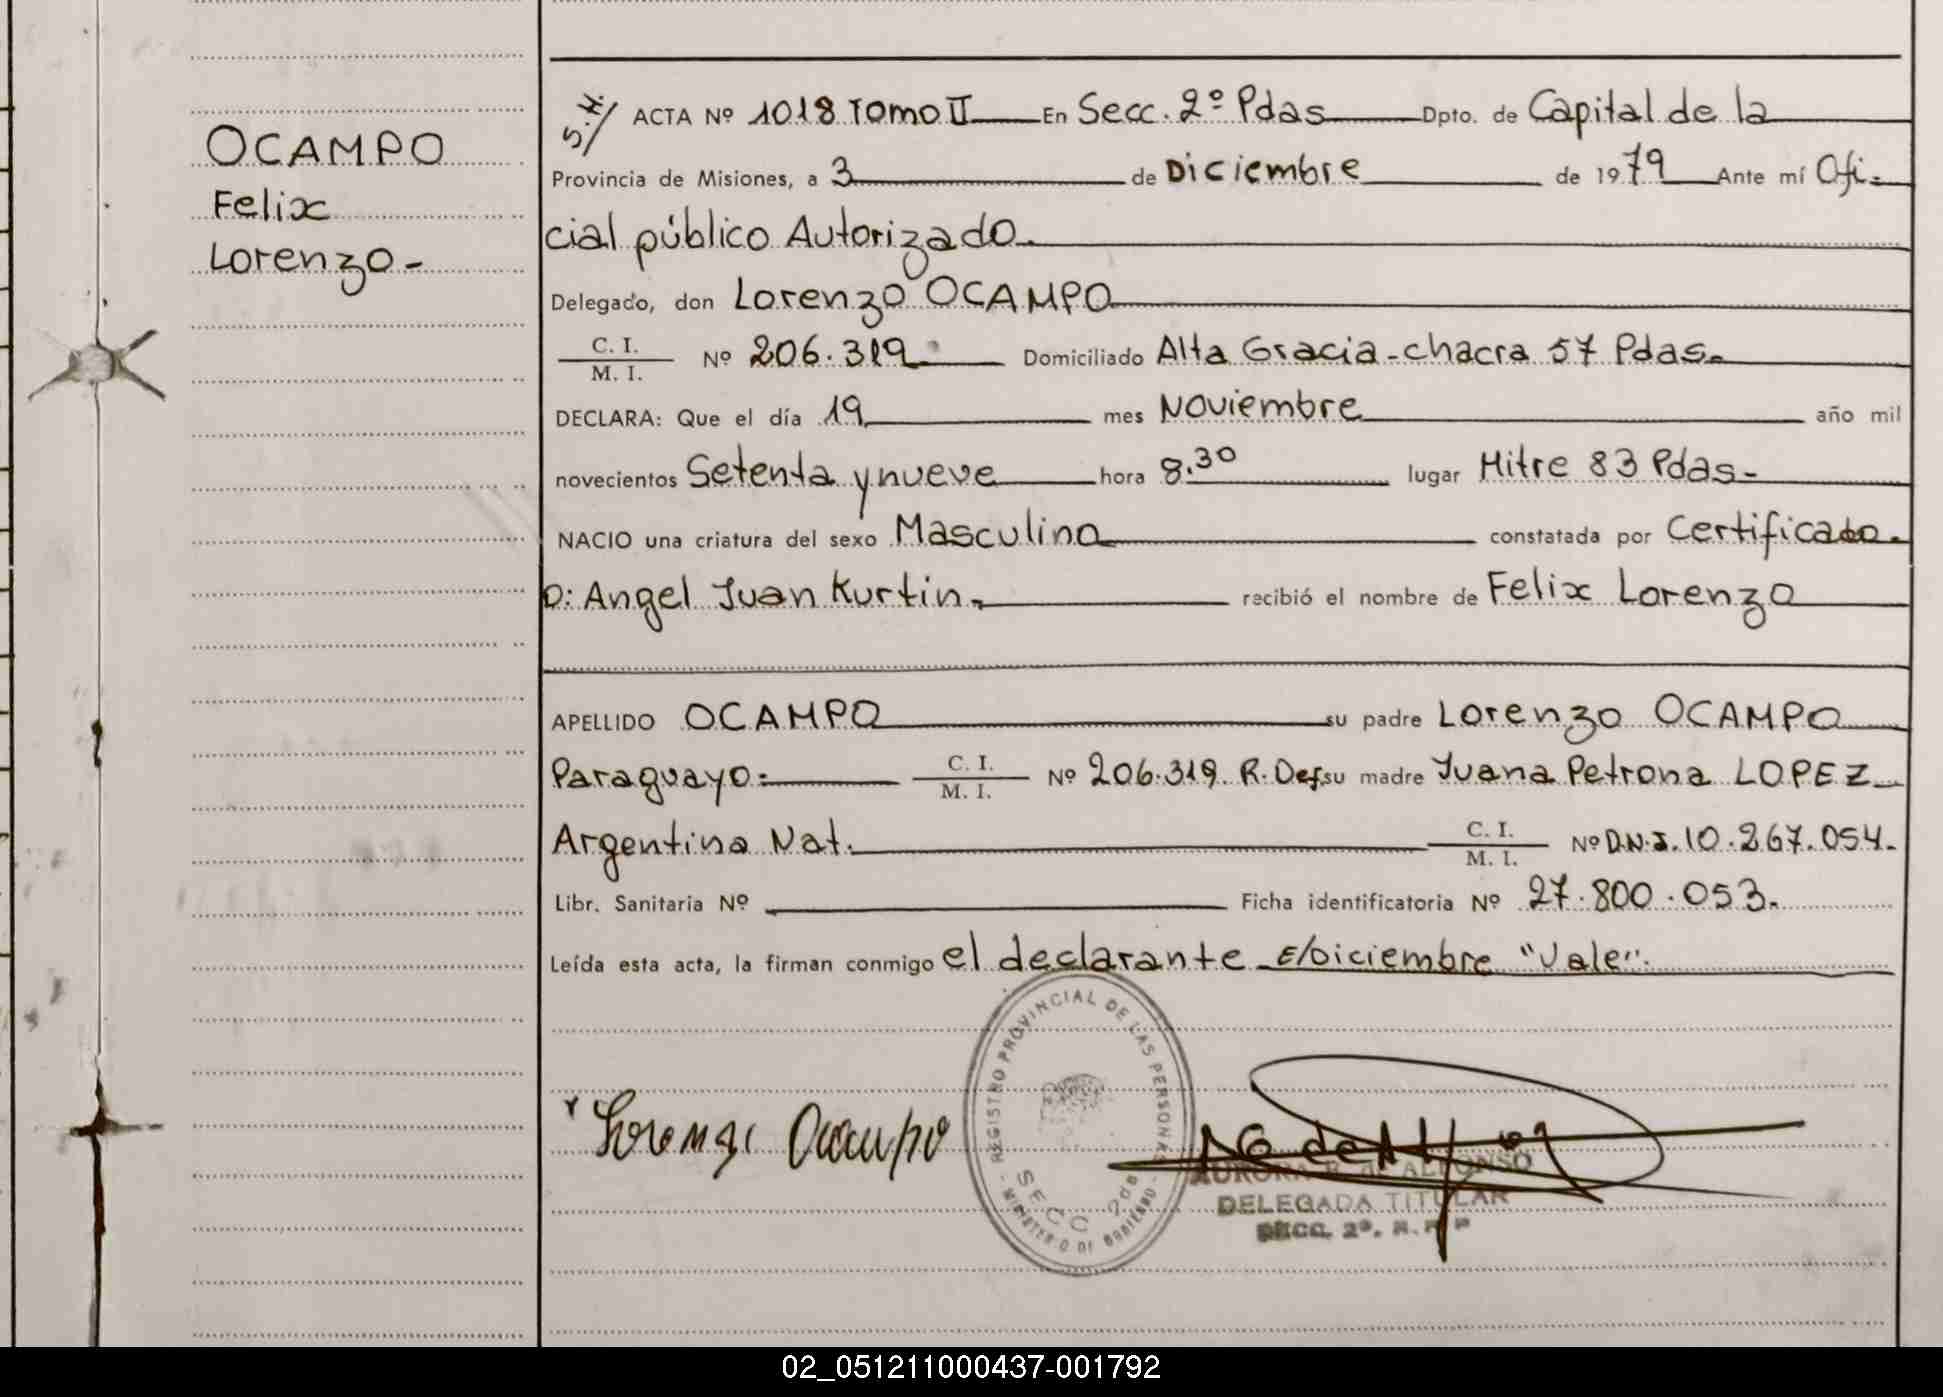 OCAMPO
Felix
Lorenzo-
S.H/ ACTA Nº 1018 Tomo II En Secc. 2º Pdas Dpto. de Capital de la
Provincia de Misiones, a 3 de Diciembre de 1979 Ante mí Ofi-
cial público Autorizado.
Delegado, don Lorenzo OCAMPO
C. I.
M. I. Nº 206.319 Domiciliado Alta Gracia-chacra 57 Pdas.
DECLARA: Que el día 19 mes Noviembre año mil
novecientos Setenta y nueve hora 8.30 lugar Mitre 83 Pdas-
NACIO una criatura del sexo Masculino constatada por Certificado.
D: Angel Juan Kurtin. recibió el nombre de Felix Lorenzo
APELLIDO OCAMPO su padre Lorenzo OCAMPO
Paraguayo: C. I.
M. I. Nº 206.319 R. Def. su madre Juana Petrona LOPEZ
Argentina Nat. C. I.
M. I. Nº D.N.I. 10.267.054.
Libr. Sanitaria Nº Ficha identificatoria Nº 27.800.053.
Leída esta acta, la firman conmigo el declarante E/Diciembre "Vale".
REGISTRO PROVINCIAL DE LAS PERSONAS
SECC 2da
- MINISTERIO DE GOBIERNO -
Lorenzo Ocampo
AURORA B. de ALFONSO
DELEGADA TITULAR
SECC. 2º. R. P. P
02_051211000437-001792